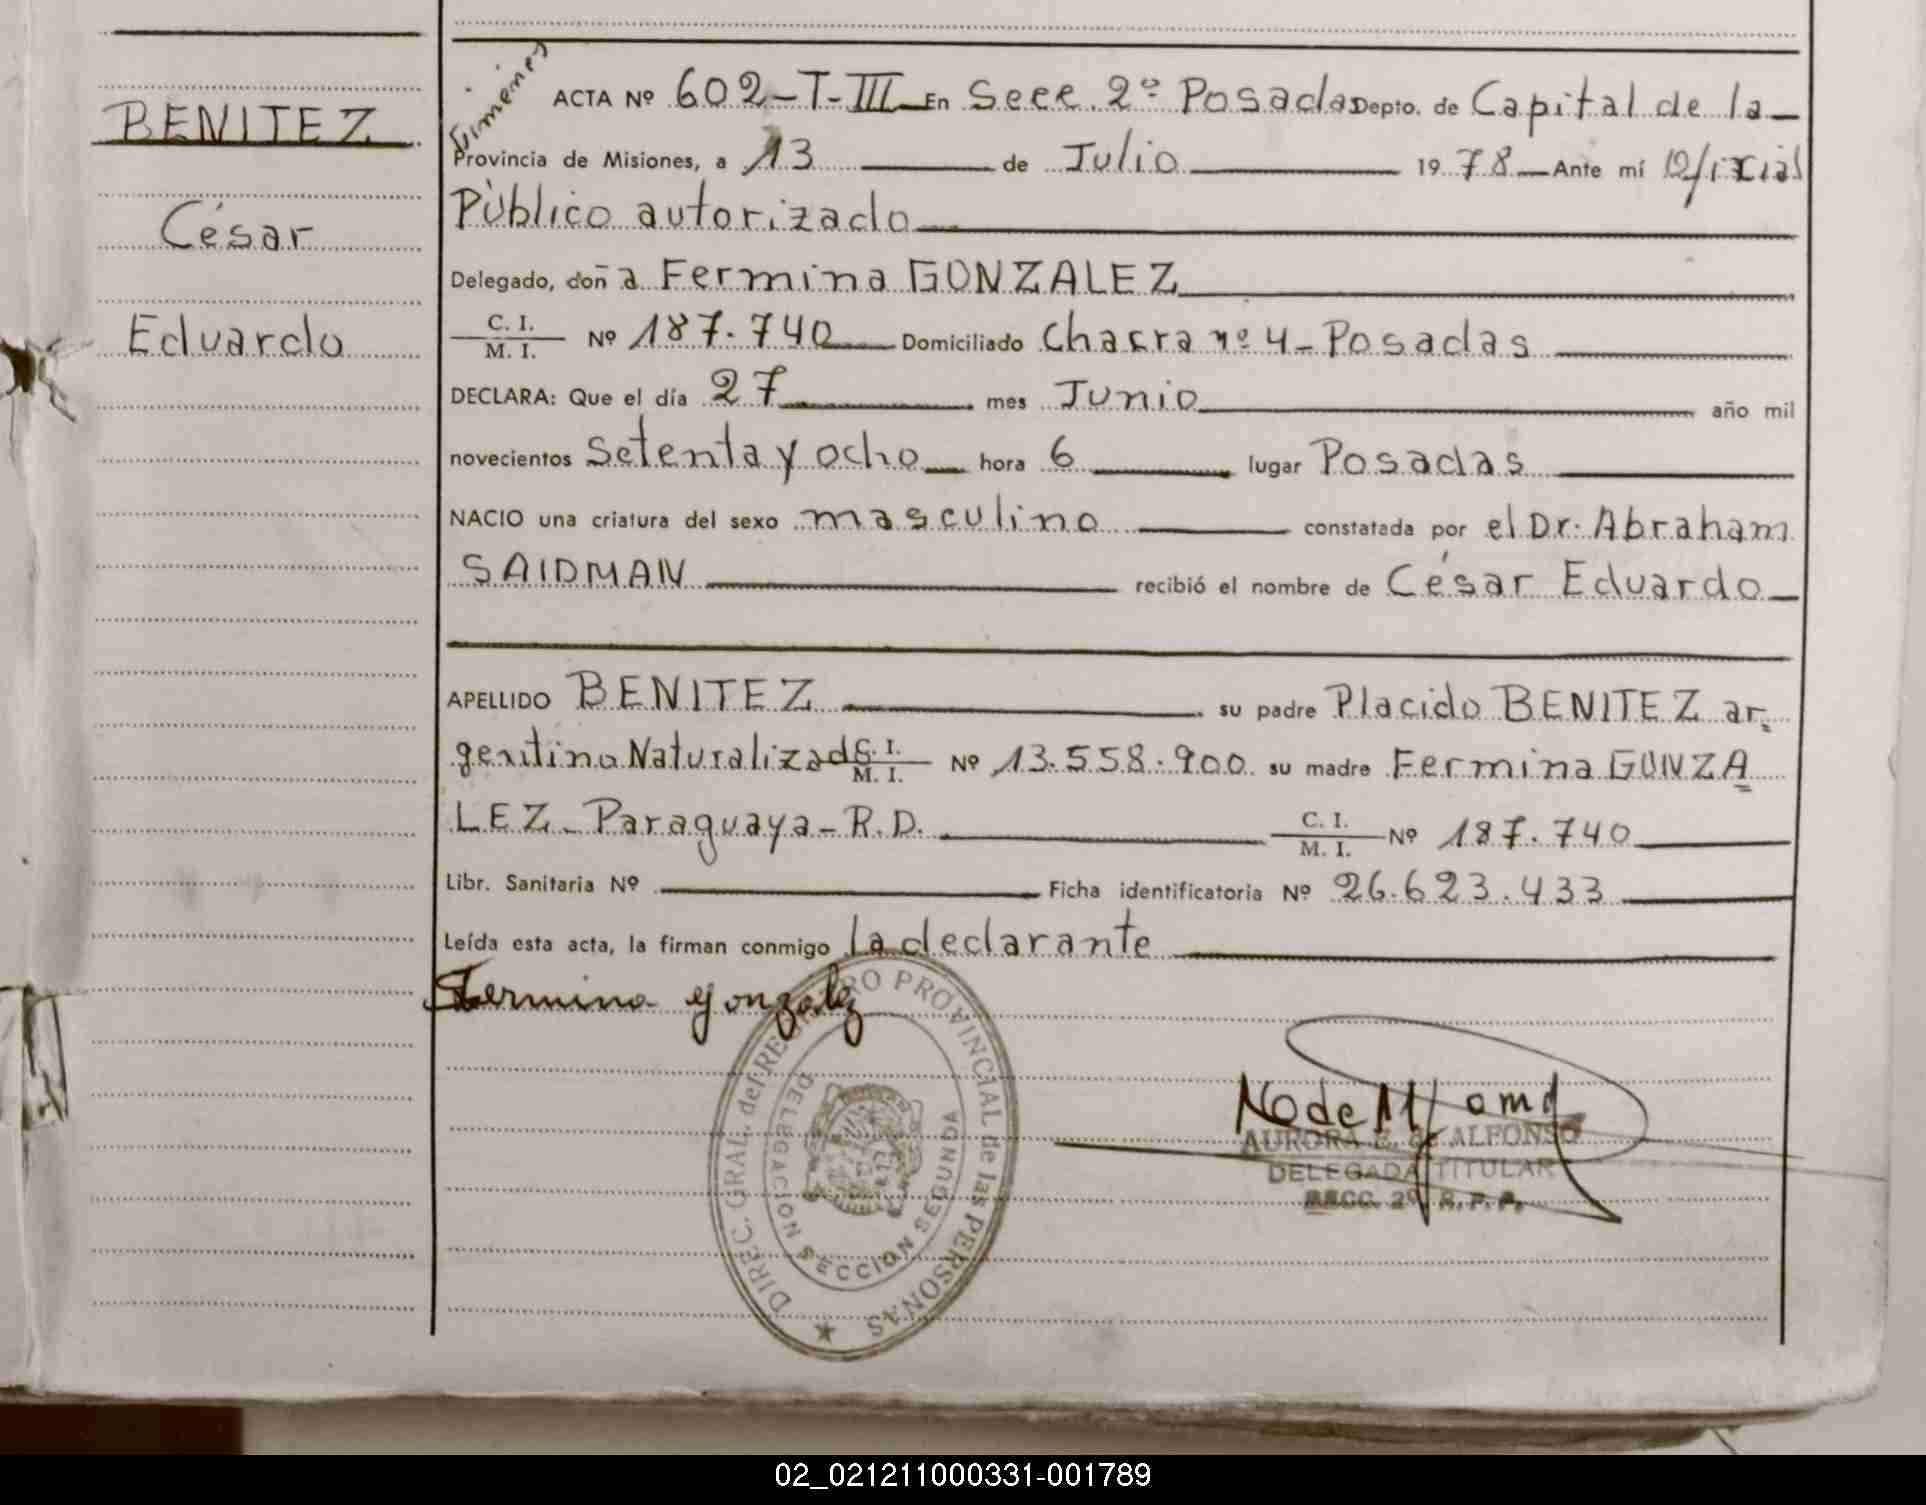 BENITEZ
César
Eduardo
Gimenes
ACTA Nº 602-T-III En Secc. 2º Posadas Depto. de Capital de la
Provincia de Misiones, a 13 de Julio 1978 Ante mí Oficial
Público autorizado
Delegado, doña Fermina GONZALEZ
C. I. / M. I. Nº 187.740 Domiciliado Chacra nº 4 - Posadas
DECLARA: Que el día 27 mes Junio año mil
novecientos Setenta y ocho hora 6 lugar Posadas
NACIO una criatura del sexo masculino constatada por el Dr. Abraham
SAIDMAN recibió el nombre de César Eduardo
APELLIDO BENITEZ su padre Placido BENITEZ ar-
gentino Naturalizado C. I. / M. I. Nº 13.558.900 su madre Fermina GONZA
LEZ - Paraguaya - R.D. C. I. / M. I. Nº 187.740
Libr. Sanitaria Nº Ficha identificatoria Nº 26.623.433
Leída esta acta, la firman conmigo la declarante
Fermina Gonzalez
DIREC. GRAL. del REGISTRO PROVINCIAL de las PERSONAS
DELEGACION SECCION SEGUNDA
AURORA E. de ALFONSO
DELEGADA TITULAR
SECC. 2º R. P. P.
02_021211000331-001789